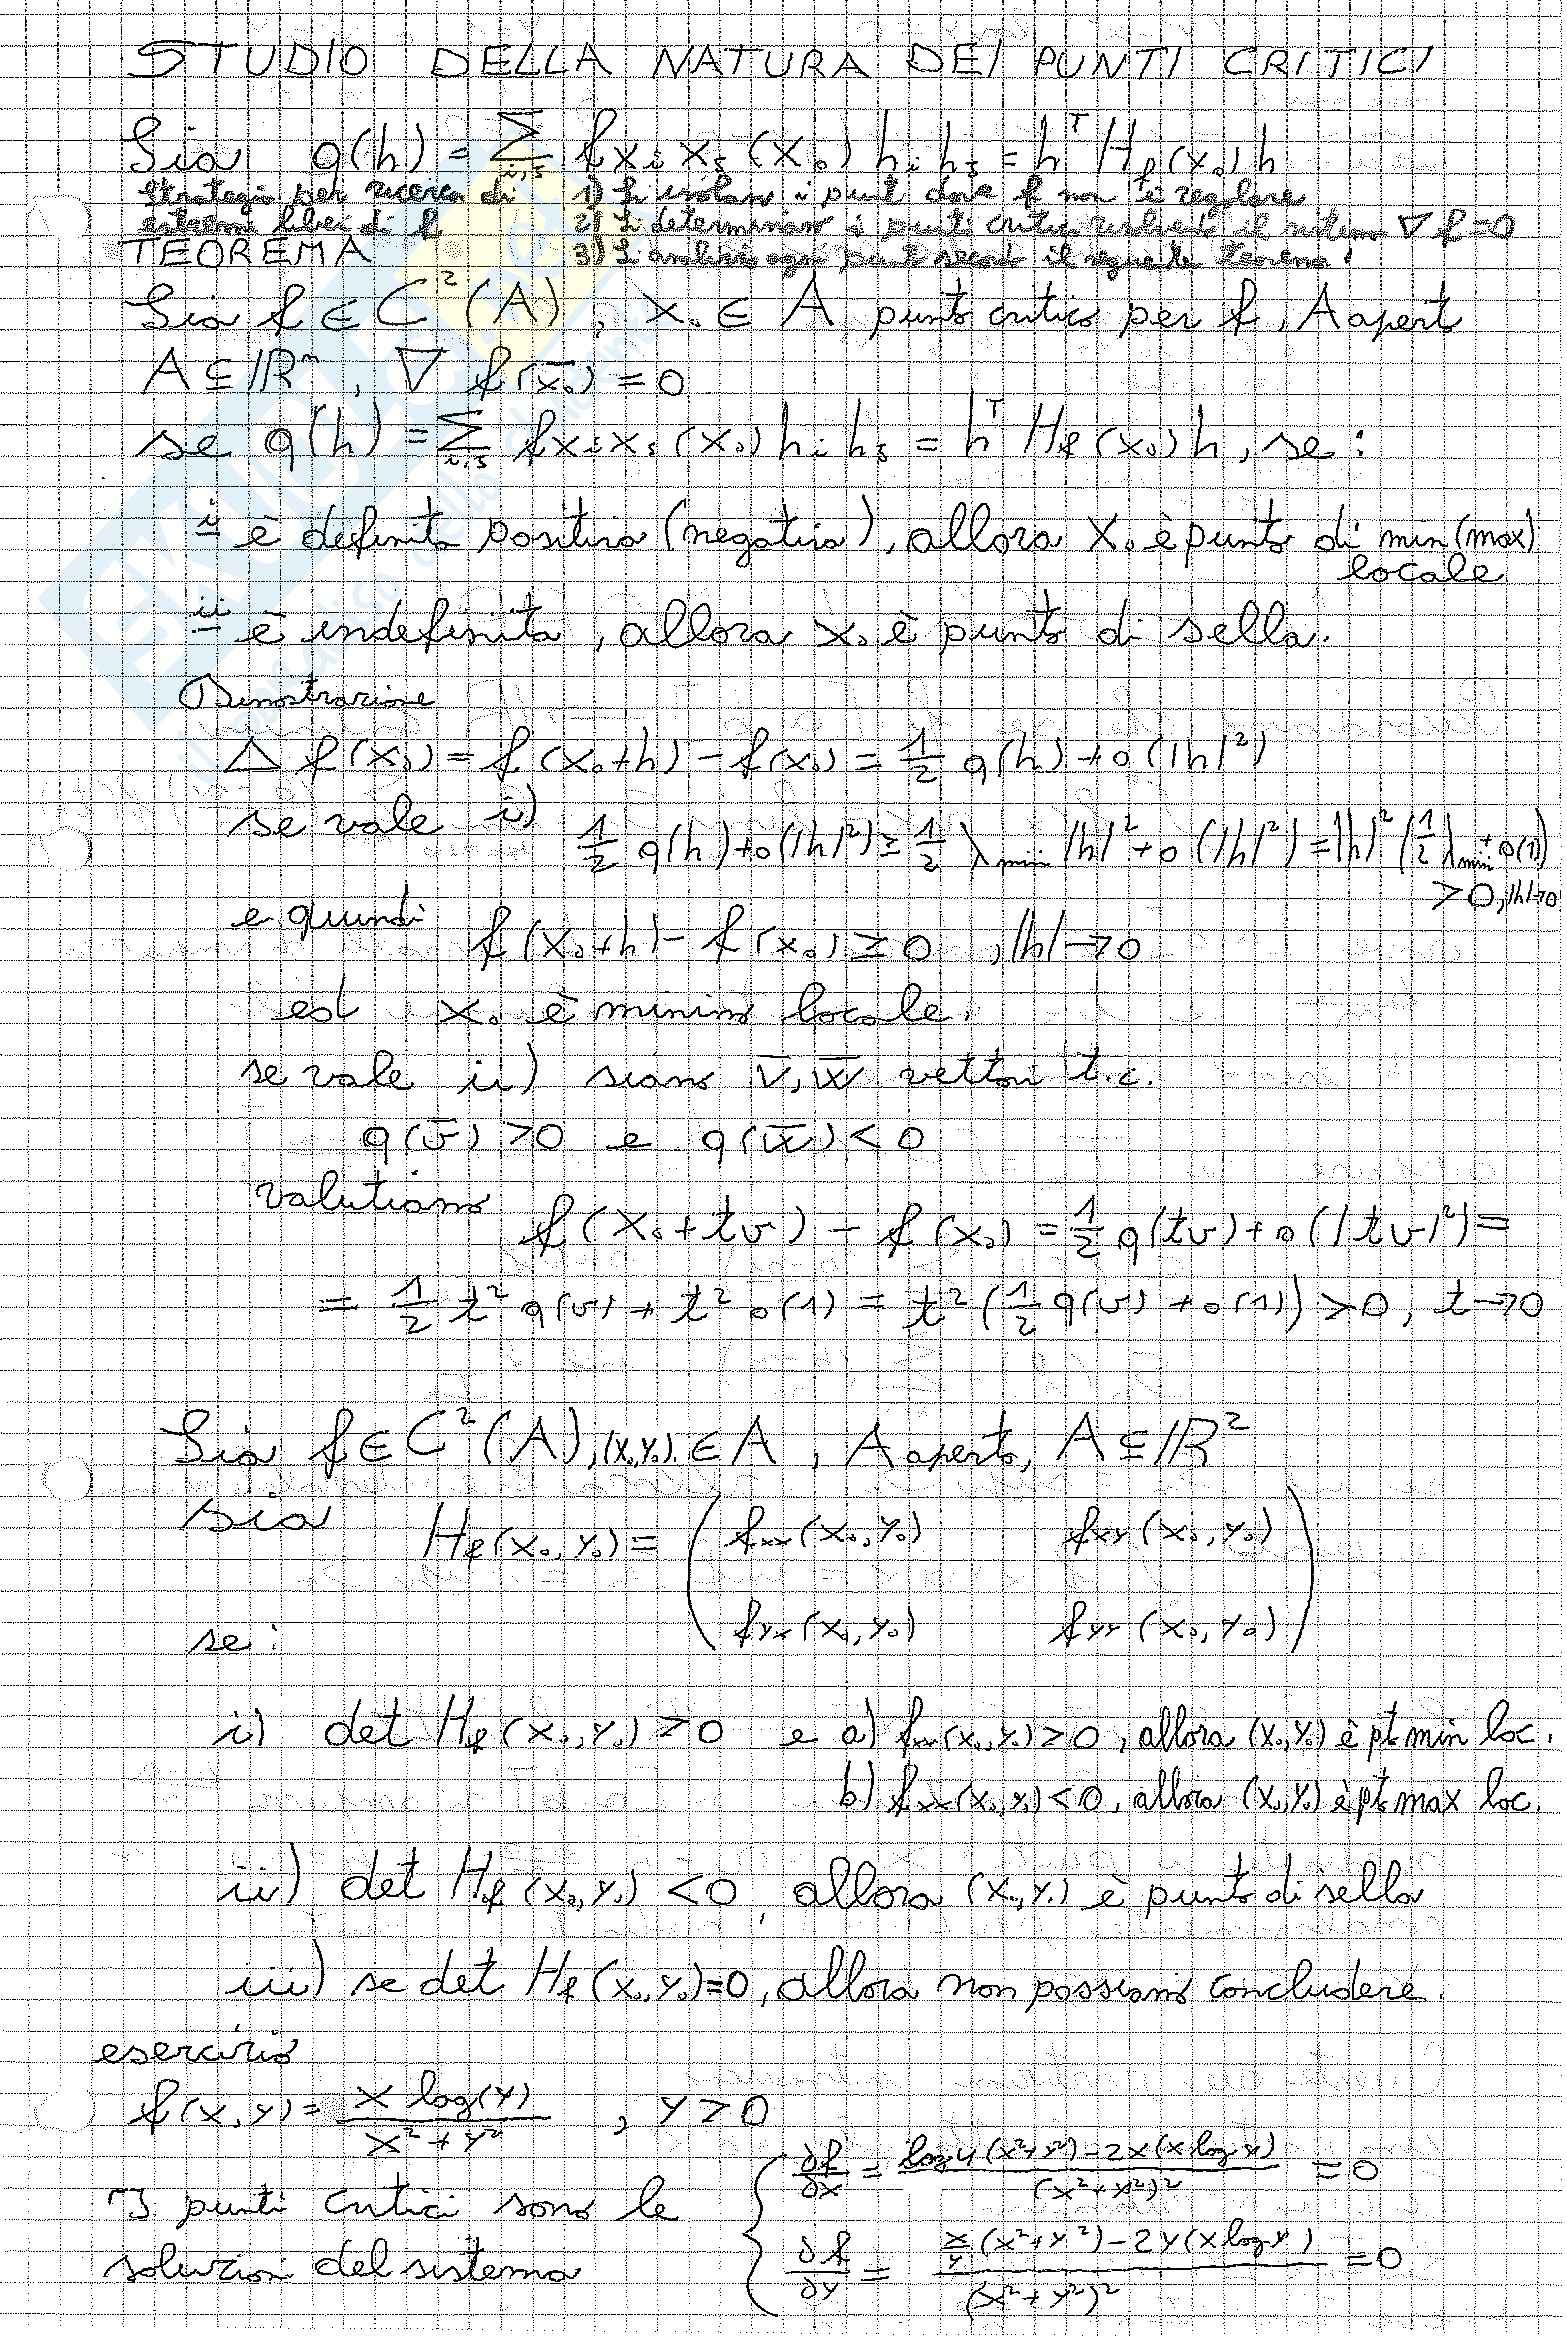 STUDIO DELLA NATURA DEI PUNTI CRITICI
Sia q(h) = Σ_{i,j} f_{x_i x_j}(x₀) h_i h_j = hᵀ H_f(x₀) h
Strategia per ricerca di
estremi liberi di f
1) Si isolano i punti dove f non è regolare
2) Si determinano i punti critici risolvendo il sistema ∇f=0
3) Si analizza ogni punto secondo il seguente teorema:
TEOREMA
Sia f ∈ C²(A), x₀ ∈ A punto critico per f, A apert
A ⊆ ℝⁿ, ∇f(x̄₀) = 0
se q(h) = Σ_{i,j} f_{x_i x_j}(x₀) h_i h_j = hᵀ H_f(x₀) h, se:
i è definita positiva (negativa), allora x₀ è punto di min (max)
locale
ii è indefinita, allora x₀ è punto di sella.
Dimostrazione
Δf(x₀) = f(x₀+h) - f(x₀) = 1/2 q(h) + o(|h|²)
se vale i) 1/2 q(h) + o(|h|²) ≥ 1/2 λ_min |h|² + o(|h|²) = |h|² (1/2 λ_min + o(1))
>0, |h|→0
e quindi f(x₀+h) - f(x₀) ≥ 0 , |h|→0
ed x₀ è minimo locale.
se vale ii) siano v̄, w̄ vettori t.c.
q(v̄) >0 e q(w̄) <0
valutiamo f(x₀+tv) - f(x₀) = 1/2 q(tv) + o(|tv|²) =
= 1/2 t² q(v) + t² o(1) = t² (1/2 q(v) + o(1)) >0, t→0
Sia f ∈ C²(A), (x₀,y₀) ∈ A, A aperto, A ⊆ ℝ²
sia H_f(x₀,y₀) = ( f_xx(x₀,y₀) f_xy(x₀,y₀)
f_yx(x₀,y₀) f_yy(x₀,y₀) )
se:
i) det H_f(x₀,y₀) >0 e a) f_xx(x₀,y₀)>0, allora (x₀,y₀) è pto min loc.
b) f_xx(x₀,y₀)<0, allora (x₀,y₀) è pto max loc.
ii) det H_f(x₀,y₀) <0, allora (x₀,y₀) è punto di sella
iii) se det H_f(x₀,y₀)=0, allora non possiamo concludere.
esercizio
f(x,y) = x log(y) / (x²+y²) , y>0
I punti critici sono le
soluzioni del sistema
{ ∂f/∂x = (log y (x²+y²) - 2x(x log y)) / (x²+y²)² = 0
∂f/∂y = (x/y (x²+y²) - 2y(x log y)) / (x²+y²)² = 0